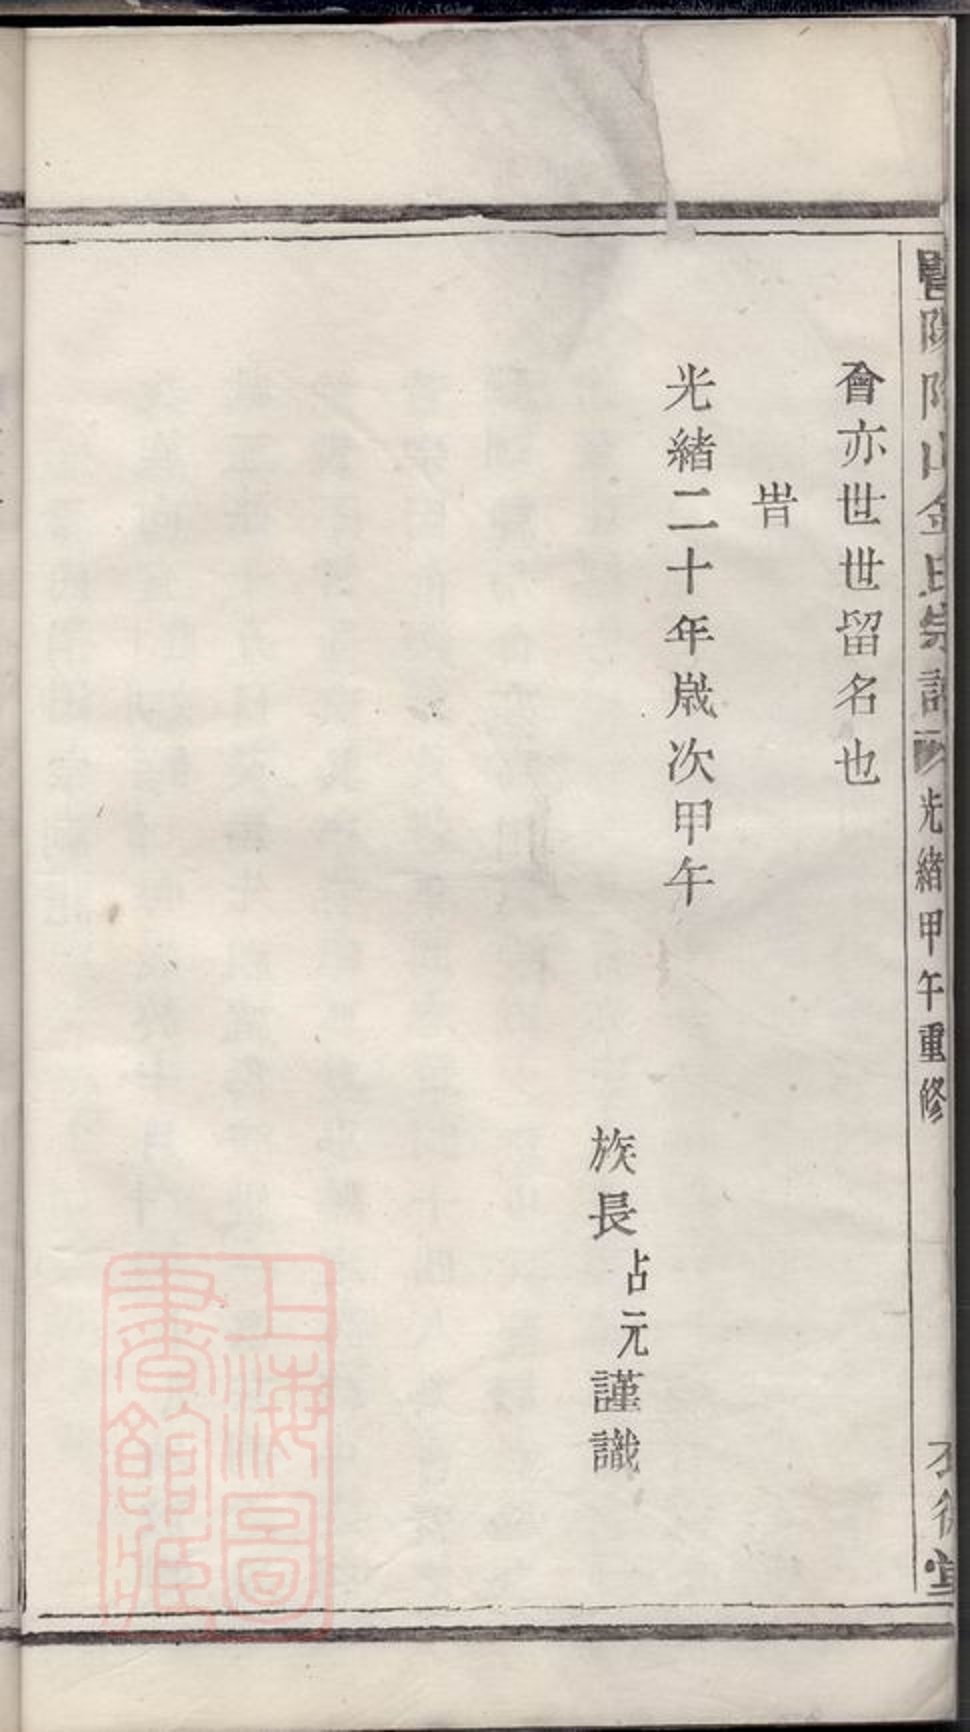 暨陽陶山金氏宗譜 光緒甲午重修
堂
會亦世世留名也
旹
光緒二十年歲次甲午
族長占元謹識
上海圖
書館藏